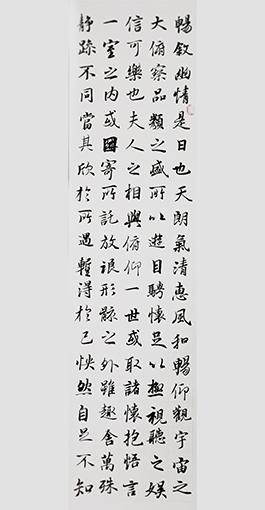 暢敘幽情是日也天朗氣清惠風和暢仰觀宇宙之
大俯察品類之盛所以遊目騁懷足以極視聽之娛
信可樂也夫人之相與俯仰一世或取諸懷抱悟言
一室之内或因寄所託放浪形骸之外雖趣舍萬殊
靜躁不同當其欣於所遇暫得於己怏然自足不知